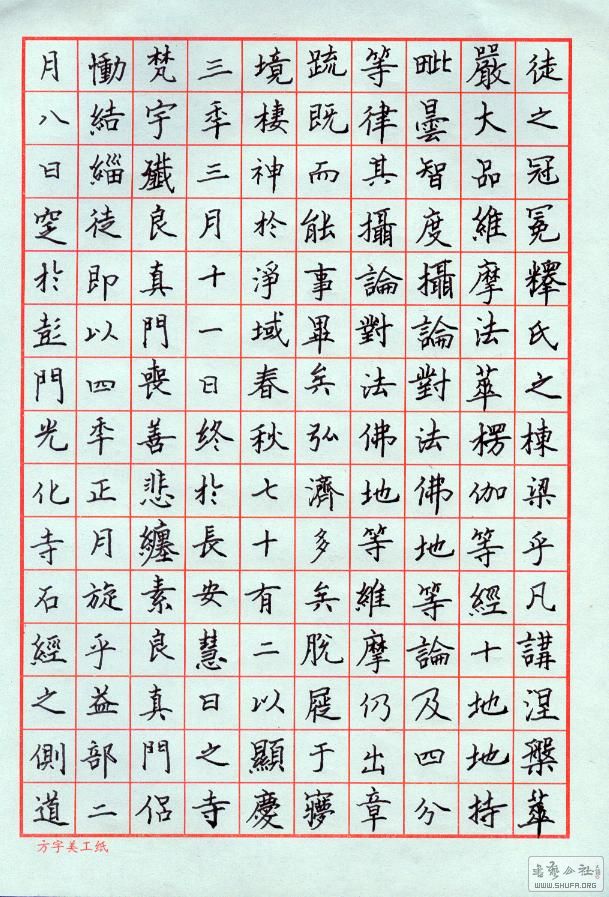 徒之冠冕釋氏之棟梁乎凡講涅槃華
嚴大品維摩法華楞伽等經十地地持
毗曇智度攝論對法佛地等論及四分
等律其攝論對法佛地等維摩仍出章
疏既而能事畢矣弘濟多矣脫屣于夢
境棲神於淨域春秋七十有二以顯慶
三秊三月十一日終於長安慧日之寺
梵宇殲良真門喪善悲纏素良真門侶
慟結緇徒即以四秊正月旋乎益部二
月八日窆於彭門光化寺石經之側道
方字美工纸
书艺公社
WWW.SHUFA.ORG